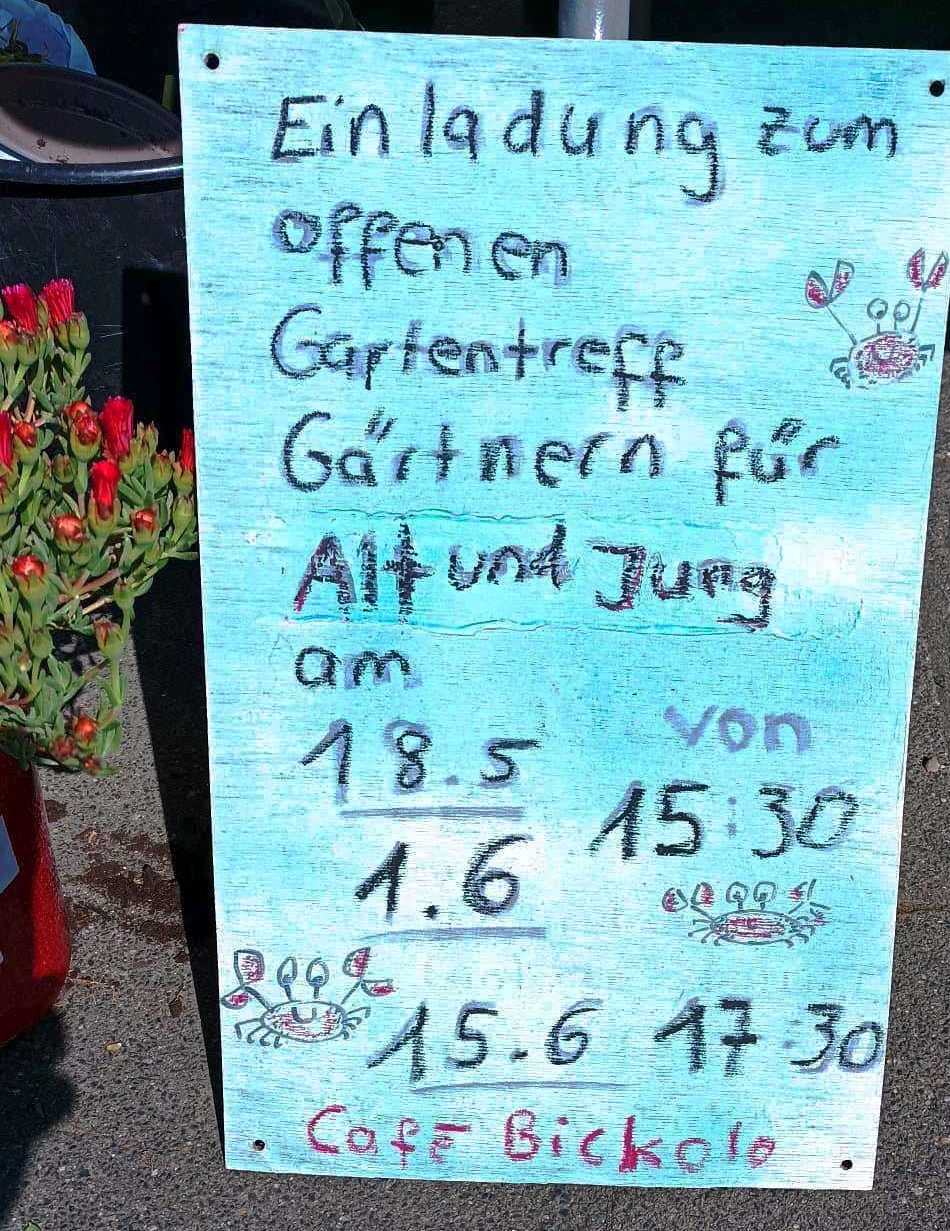 Einladung zum
offenen
Gartentreff
Gärtnern für
Alt und Jung
am
18.5 von
1.6 15:30
15.6 17:30
Cafe Bickolo